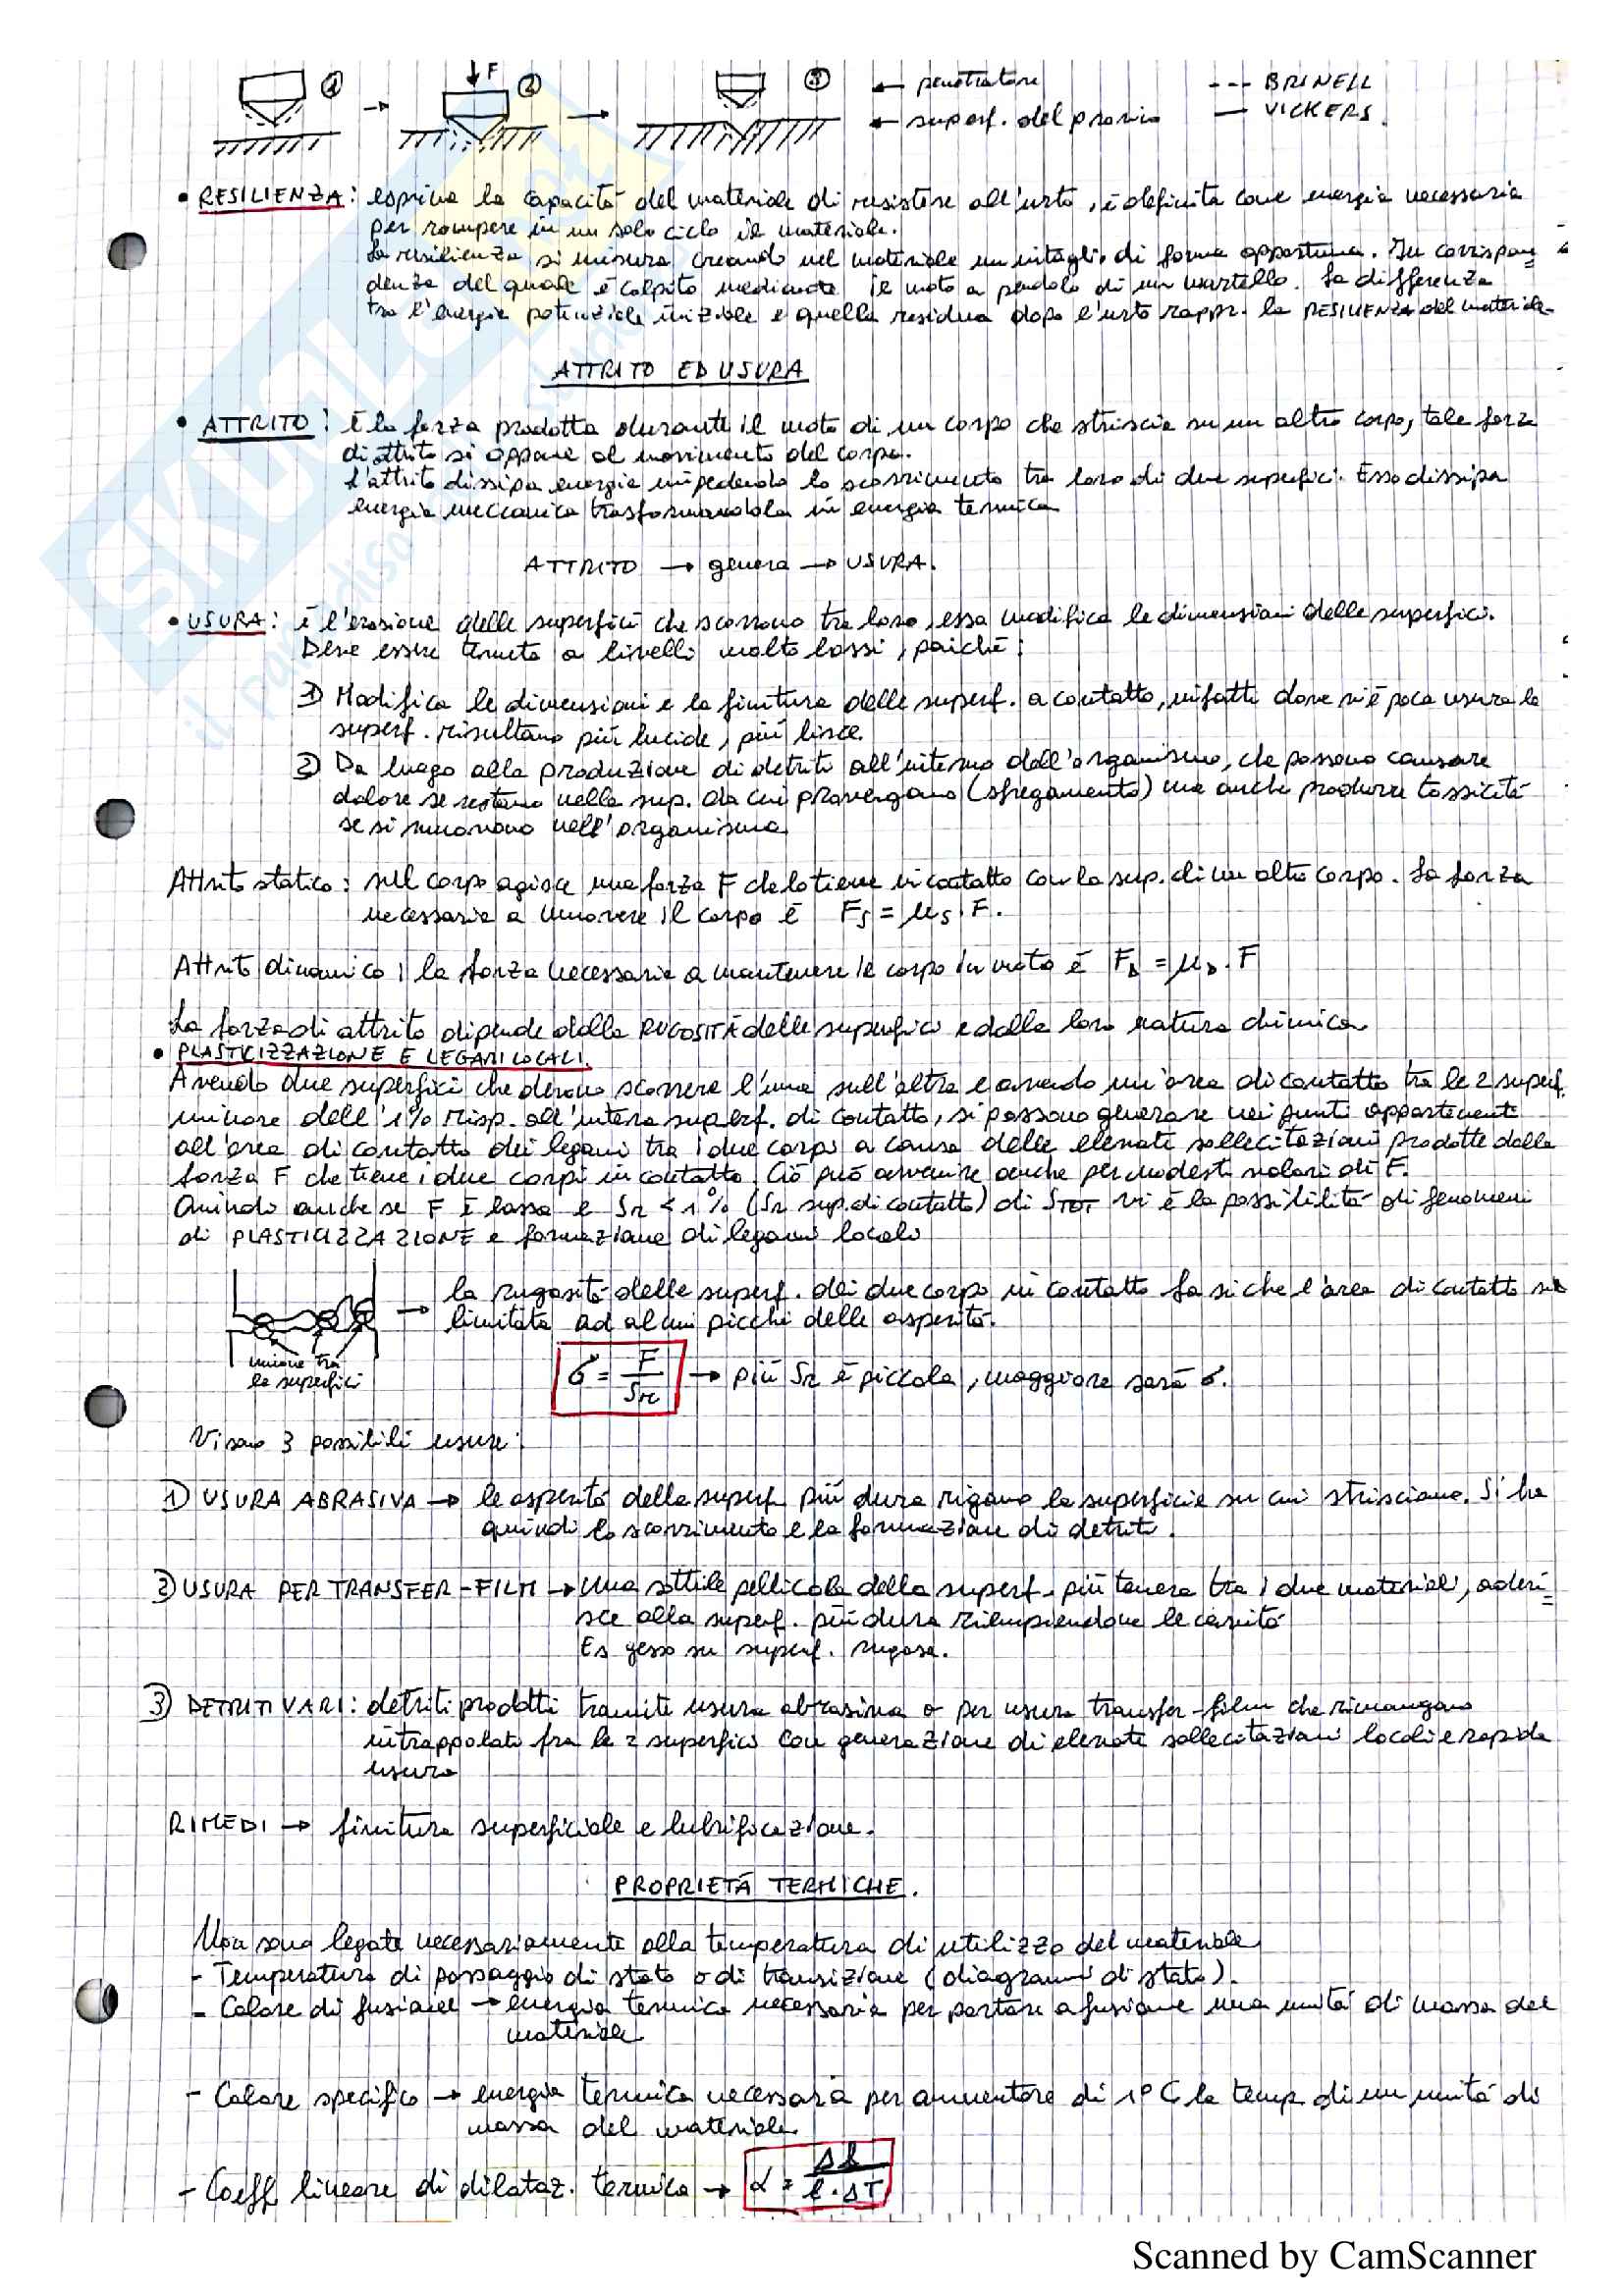 ① → F ② → ③ ← penetratore --- BRINELL
← superf. del provino — VICKERS.
• RESILIENZA: esprime la capacità del materiale di resistere all'urto, è definita come energia necessaria
per rompere in un solo ciclo il materiale.
La resilienza si misura creando nel materiale un intaglio di forma opportuna. In corrispon=
denza del quale è colpito mediante il moto a pendolo di un martello. La differenza
tra l'energia potenziale iniziale e quella residua dopo l'urto rappr. la RESILIENZA del materiale
ATTRITO ED USURA
• ATTRITO: è la forza prodotta durante il moto di un corpo che striscia su un altro corpo, tale forza
di attrito si oppone al movimento del corpo.
L'attrito dissipa energia impedendo lo scorrimento tra loro di due superfici. Esso dissipa
energia meccanica trasformandola in energia termica
ATTRITO → genera → USURA.
• USURA: è l'erosione delle superfici che scorrono tra loro, essa modifica le dimensioni delle superfici.
Deve essere tenuta a livelli molto bassi, poiché:
1) Modifica le dimensioni e la finitura delle superf. a contatto, infatti dove vi è poca usura le
superf. risultano più lucide, più lisce.
2) Da luogo alla produzione di detriti all'interno dell'organismo, che possono causare
dolore se restano nella sup. da cui provengono (sfregamento) ma anche produrre tossicità
se si muovono nell'organismo
Attrito statico: sul corpo agisce una forza F che lo tiene in contatto con la sup. di un altro corpo. La forza
necessaria a muovere il corpo è Fs = μs · F.
Attrito dinamico: la forza necessaria a mantenere il corpo in moto è FD = μD · F
La forza di attrito dipende dalla RUGOSITÀ delle superfici e dalla loro natura chimica
• PLASTICIZZAZIONE E LEGAMI LOCALI.
Avendo due superfici che devono scorrere l'una sull'altra e avendo un'area di contatto tra le 2 superf.
minore dell'1% risp. all'intera superf. di contatto, si possono generare nei punti appartenenti
all'area di contatto dei legami tra i due corpi a causa delle elevate sollecitazioni prodotte dalla
forza F che tiene i due corpi in contatto. Ciò può avvenire anche per modesti valori di F.
Quindi anche se F è bassa e Sr < 1% (Sr sup. di contatto) di STOT vi è la possibilità di fenomeni
di PLASTICIZZAZIONE e formazione di legami locali
→ la rugosità delle superf. dei due corpi in contatto fa si che l'area di contatto sia
limitata ad alcuni picchi delle asperità.
unione tra
le superfici
σ = F/Sr → più Sr è piccola, maggiore sarà σ.
Vi sono 3 possibili usure:
1) USURA ABRASIVA → le asperità della superf. più dura rigano la superficie su cui strisciano. Si ha
quindi lo scorrimento e la formazione di detriti.
2) USURA PER TRANSFER-FILM → una sottile pellicola della superf. più tenera tra i due materiali, aderi=
sce alla superf. più dura riempiendone le cavità
Es gesso su superf. rugosa.
3) DETRITI VARI: detriti prodotti tramite usura abrasiva o per usura transfer-film che rimangono
intrappolati fra le 2 superfici con generazione di elevate sollecitazioni locali e rapida
usura
RIMEDI → finitura superficiale e lubrificazione.
PROPRIETÀ TERMICHE.
Non sono legate necessariamente alla temperatura di utilizzo del materiale
- Temperatura di passaggio di stato o di transizione (diagrammi di stato).
- Calore di fusione → energia termica necessaria per portare a fusione una unità di massa del
materiale
- Calore specifico → energia termica necessaria per aumentare di 1°C la temp di un unità di
massa del materiale.
- Coeff lineare di dilataz. termica → α = Δl / l · ΔT
SKUOLA.net
il paradiso
Scanned by CamScanner